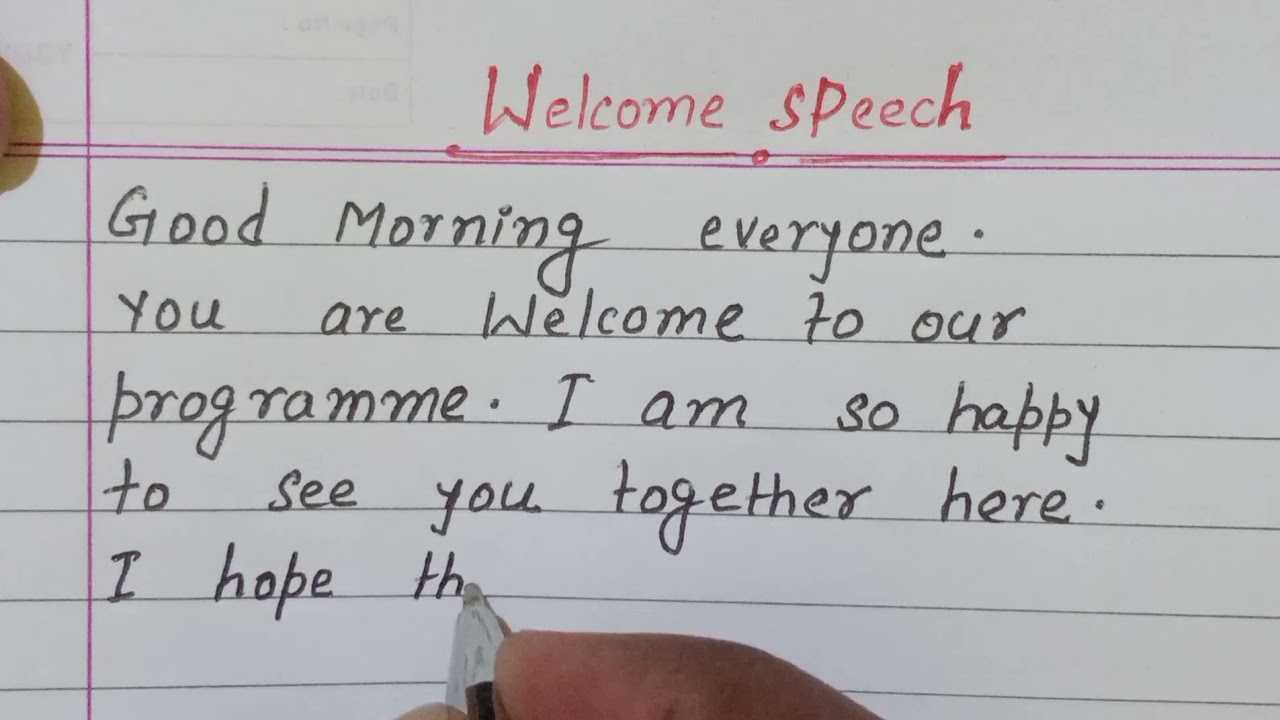 Welcome speech
Good Morning everyone.
You are Welcome to our
programme. I am so happy
to see you together here.
I hope th